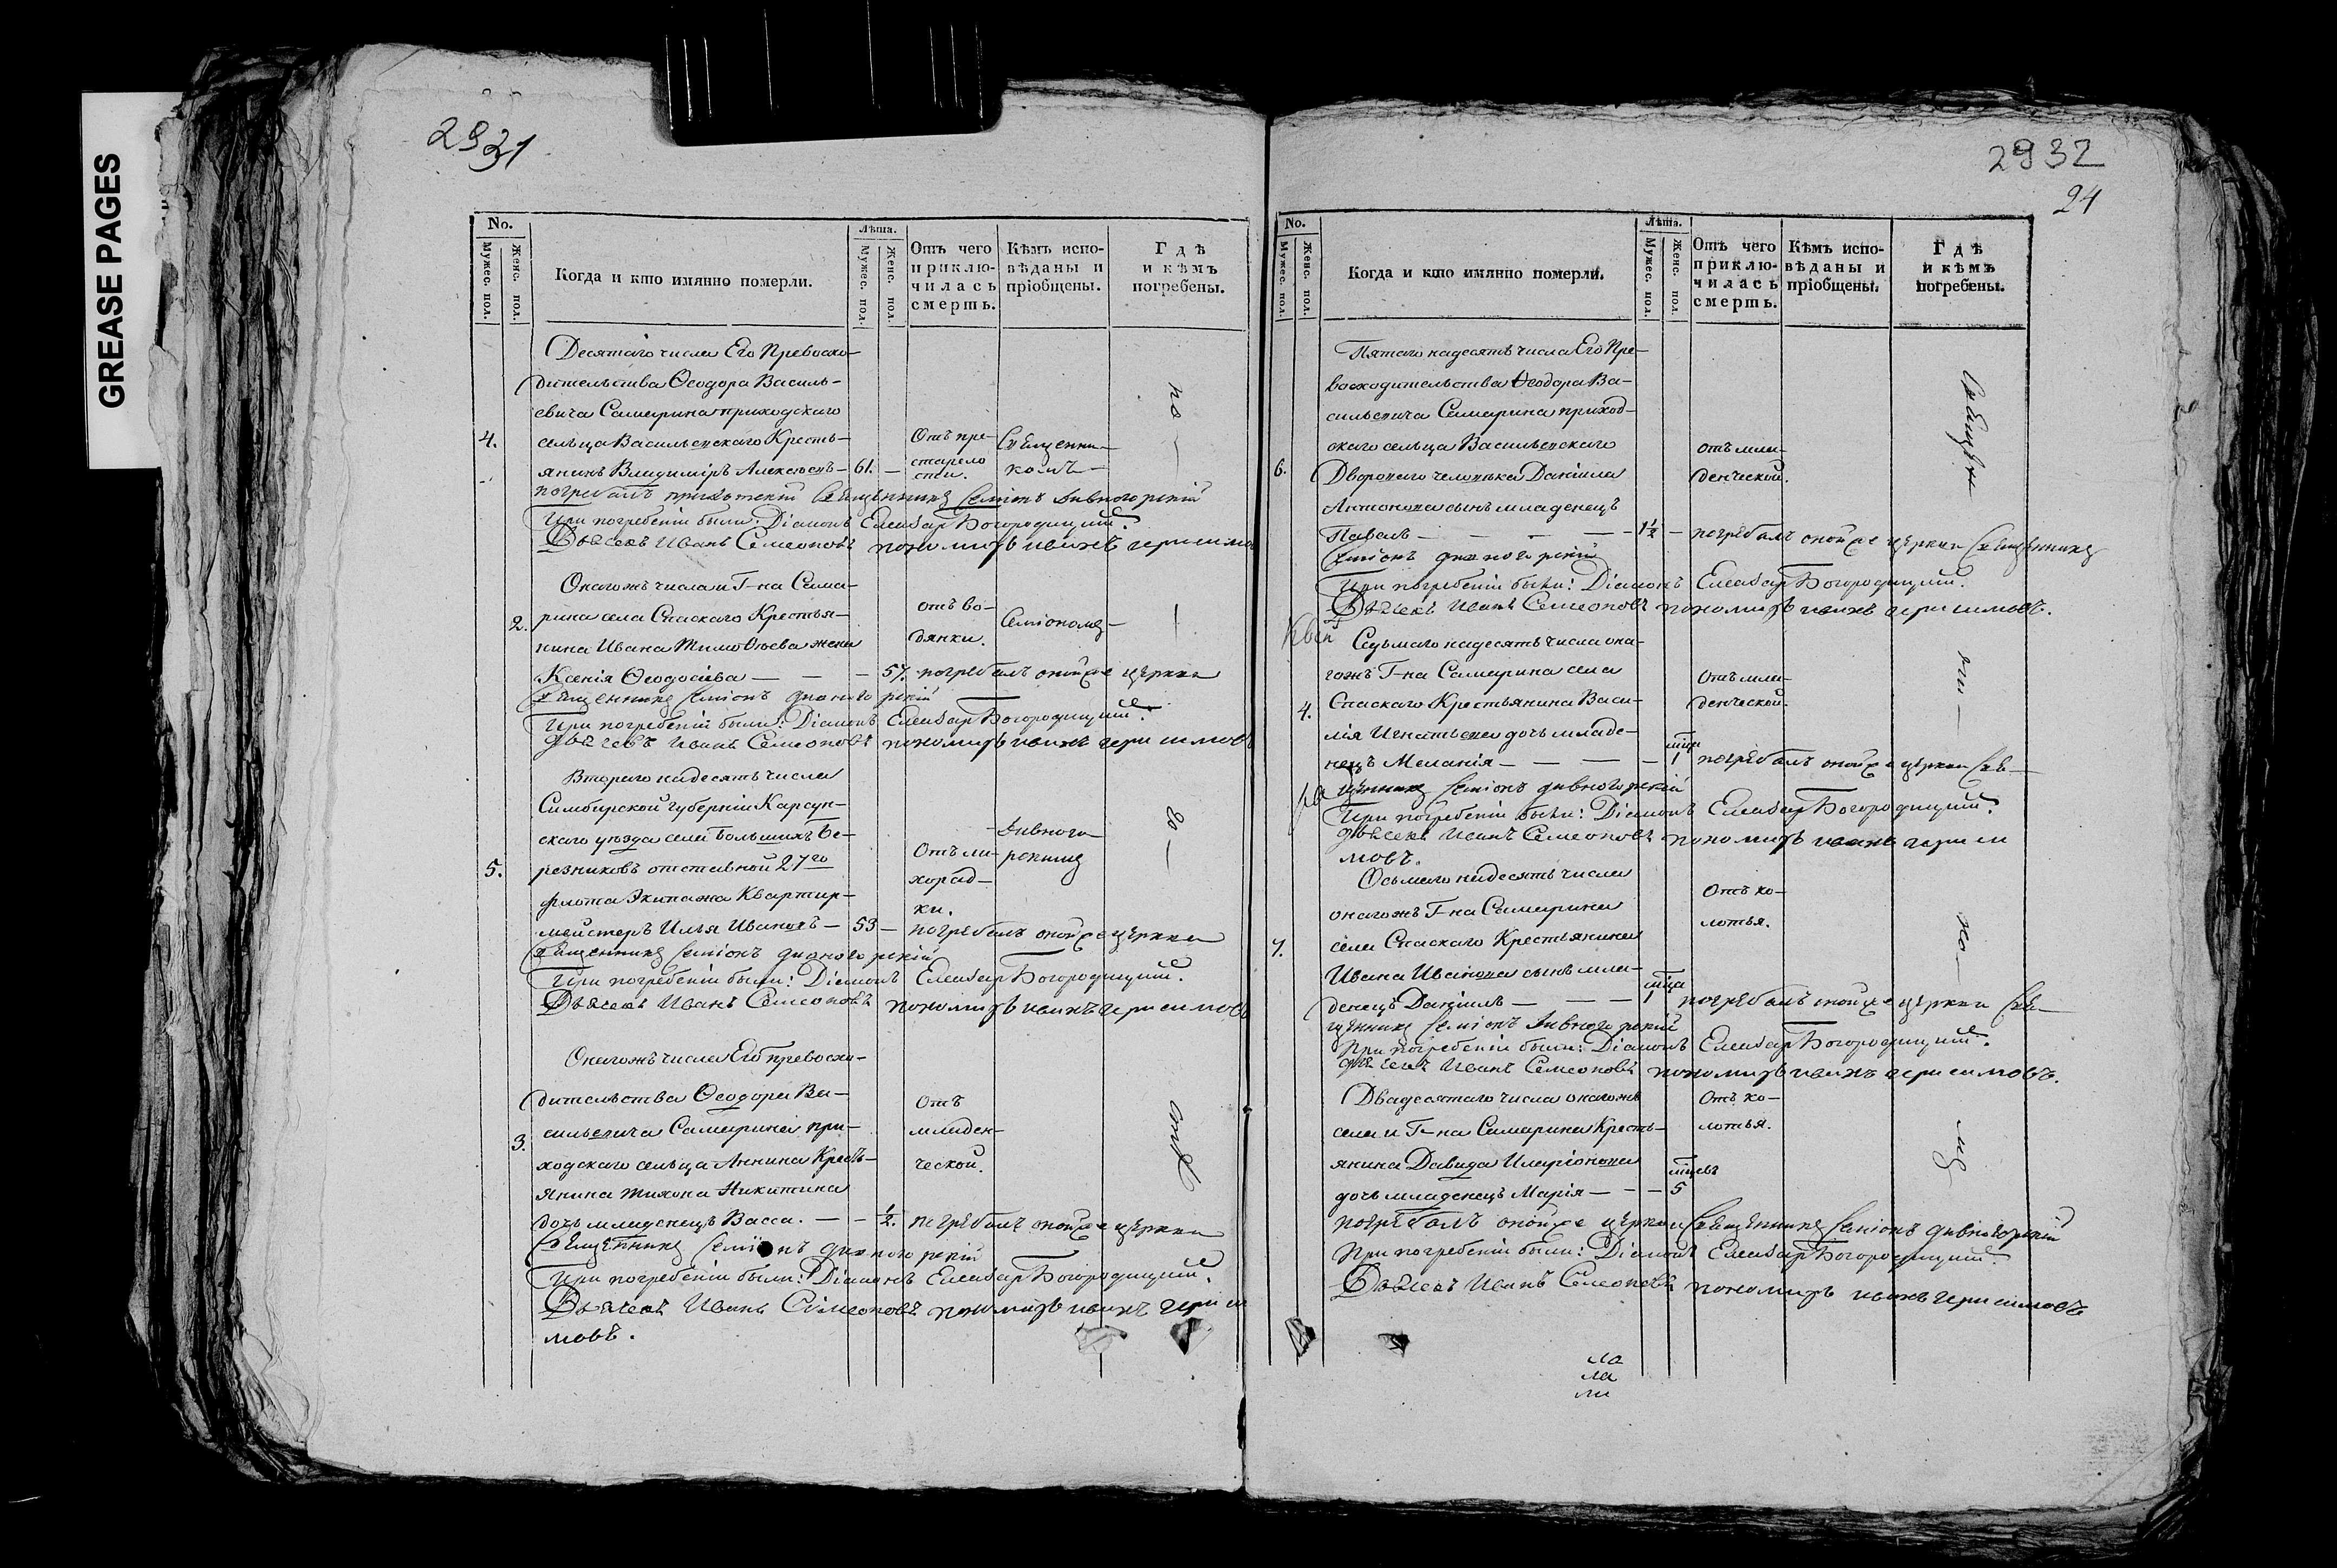 GREASE PAGES
2931
No.
Мужес. пол.
Женс. пол.
Когда и кто имянно померли.
Лѣта.
Мужес. пол.
Женс. пол.
Отъ чего
приклю-
чилась
смерть.
Кѣмъ испо-
вѣданы и
пріобщены.
Гдѣ
и кѣмъ
погребены.
Десятаго числа Его Превосхо-
дительства Ѳеодора Василь-
евича Самарина приходскаго
4. сельца Васильевскаго Кресть-
янинъ Владиміръ Алексѣевъ — 61. —
Отъ пре-
старело
сти.
Священни-
комъ —
по —
погребалъ Священникъ Семіонъ Дивногорскій
При погребеніи были: Діаконъ Елеазаръ Богородицкій.
Дьячекъ Иванъ Семеоновъ пономарь иванъ герасимов
Онагожъ числа и Г-на Сама-
рина села Спаскаго Крестья-
2. нина Ивана Тимоѳѣева жена
Ксенія Ѳеодосіева — — — 57.
отъ во-
дянки.
Семіономъ —
погребалъ оной же церкви
Священникъ Семіонъ дивногорскій
При погребеніи были: Діаконъ Елеазаръ Богородицкій.
дьячекъ Иванъ Семеоновъ пономарь иванъ герасимовъ
Втораго надесять числа
Симбирской губерніи Карсун-
скаго уѣзда села Большихъ Бе-
5. резниковъ отставной 27го
флота Экипажа Квартир-
мейстеръ Илья Ивановъ — 53 —
Отъ ли-
хорад-
ки.
Дивного-
рскимъ
до —
погребалъ оной же церкви
Священникъ Семіонъ дивногорскій
При погребеніи были: Діаконъ Елеазаръ Богородицкій.
Дьячекъ Иванъ Семеоновъ пономарь иванъ герасимовъ
Онагожъ числа Его Превосхо-
дительства Ѳеодора Ва-
сильевича Самарина при-
3. ходскаго сельца Аннина Кресть-
янина Тихона Никитина
дочь младенецъ Васса. — — ½.
Отъ
младен-
ческой.
погребалъ оной же церкви
Священникъ Семіонъ дивногорскій
При погребеніи были: Діаконъ Елеазаръ Богородицкій.
Дьячекъ Иванъ Симеоновъ пономарь иванъ гераси
мовъ.
2932
24
No.
Мужес. пол.
Женс. пол.
Когда и кто имянно померли.
Лѣта.
Мужес. пол.
Женс. пол.
Отъ чего
приклю-
чилась
смерть.
Кѣмъ испо-
вѣданы и
пріобщены.
Гдѣ
и кѣмъ
погребены.
Пятаго надесять числа Его Пре-
восходительства Ѳеодора Ва-
сильевича Самарина приход-
скаго сельца Васильевскаго
6. Двороваго человѣка Даніила
Антонова сынъ младенецъ
Павелъ — — — — 1½ —
отъ мла-
денческой.
погребалъ оной же церкви Священникъ
Семіонъ дивногорскій
При погребеніи были: Діаконъ Елеазаръ Богородицкій.
Дьячекъ Иванъ Семеоновъ пономарь иванъ герасимовъ.
Седьмаго надесять числа она-
гожъ Г-на Самарина села
4. Спаскаго Крестьянина Васи-
лія Игнатьева дочь младе-
нецъ Меланія — — — — 1
Отъ мла-
денческой.
погребалъ оной же церкви Свя-
щенникъ Семіонъ дивногорскій
При погребеніи были: Діаконъ Елеазаръ Богородицкій.
дьячекъ Иванъ Семеоновъ пономарь иванъ гераси
мовъ.
Осьмаго надесять числа
онагожъ Г-на Самарина
7. села Спаскаго Крестьянина
Ивана Иванова сынъ мла-
денецъ Даніилъ — — — 1
Отъ ко-
лотья.
погребалъ оной же церкви Свя-
щенникъ Семіонъ Дивногорскій
При погребеніи были: Діаконъ Елеазаръ Богородицкій.
дьячекъ Иванъ Семеоновъ пономарь иванъ герасимовъ.
Двадесятаго числа онагожъ
села и Г-на Самарина Кресть-
янина Давида Иларіонова
дочь младенецъ Марія — — — 5
Отъ ко-
лотья.
погребалъ оной же церкви Священникъ Семіонъ дивногорскій
При погребеніи были: Діаконъ Елеазаръ Богородицкій.
Дьячекъ Иванъ Семеоновъ пономарь иванъ герасимовъ
ла
ла
ли